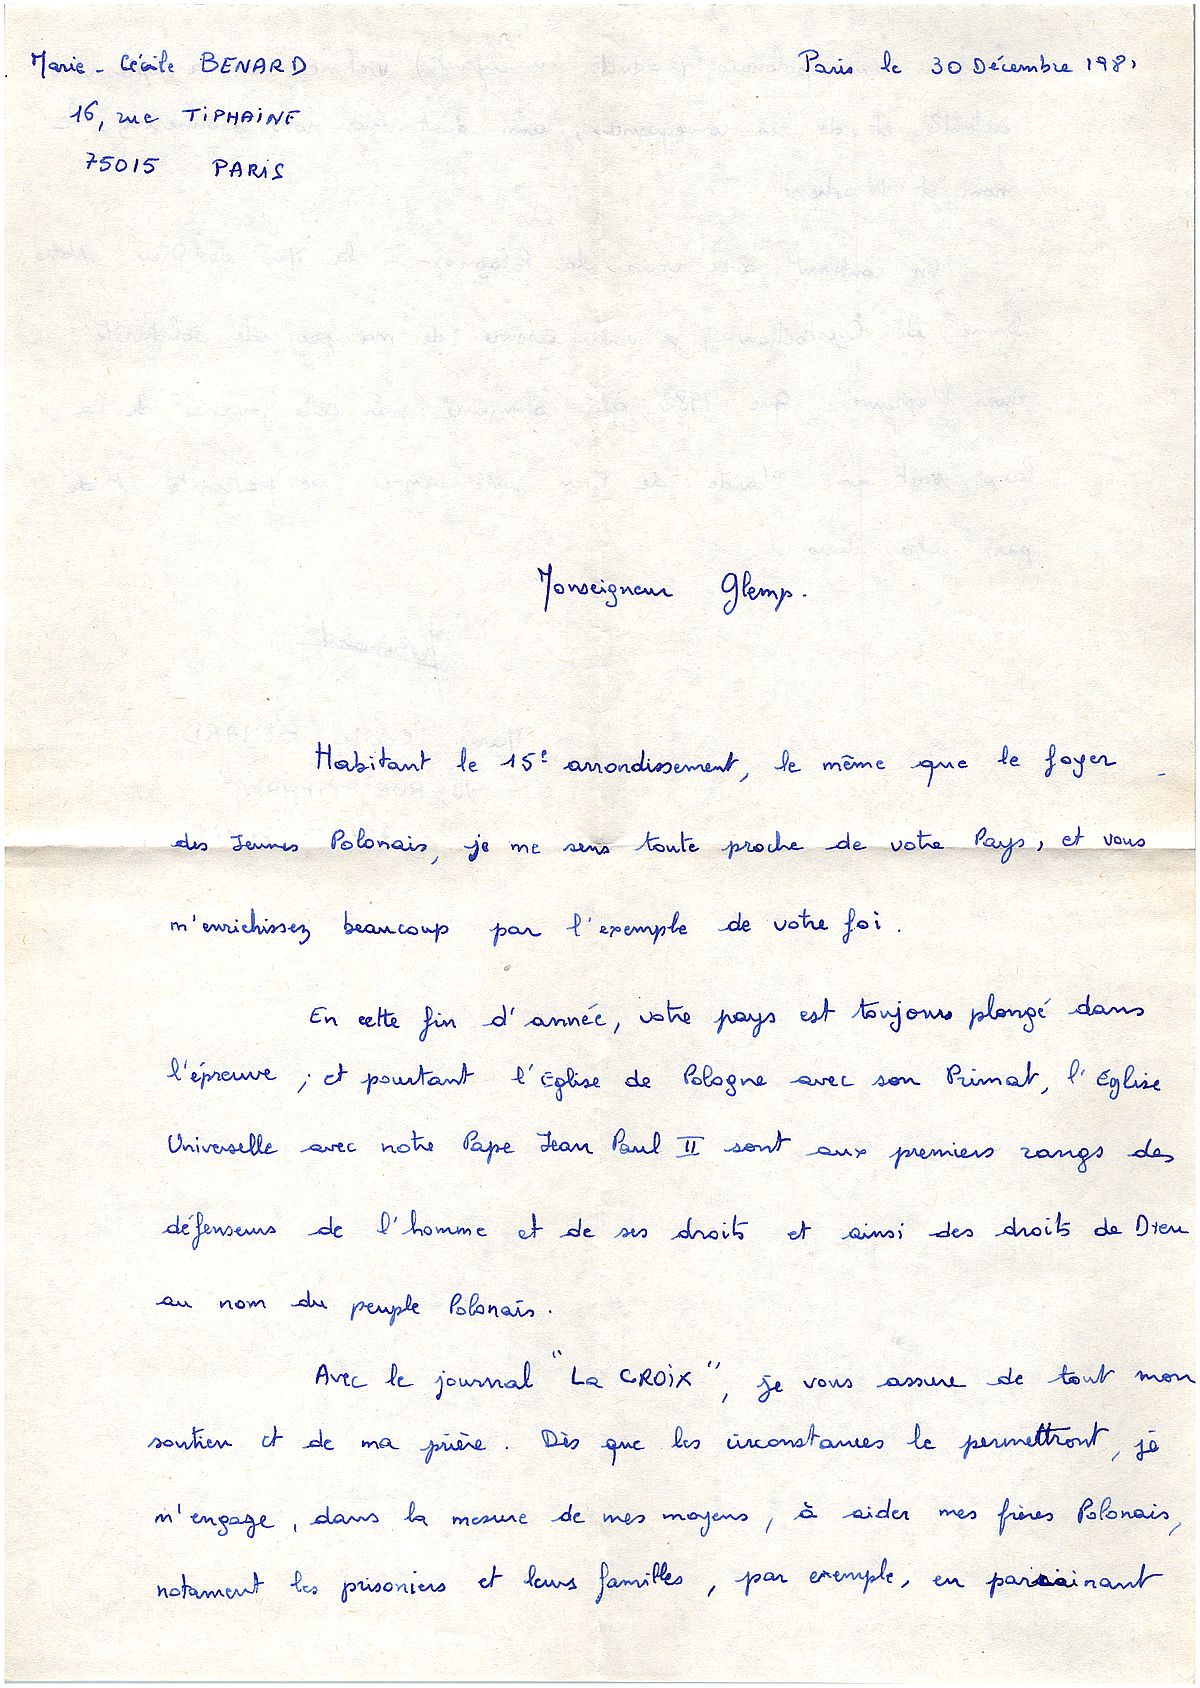 Marie-Cécile BENARD
Paris le 30 Décembre 1981
16, rue TIPHAINE
75015 PARIS
Monseigneur Glemp.
Habitant le 15e arrondissement, le même que le foyer
des Jeunes Polonais, je me sens toute proche de votre Pays, et vous
m'enrichissez beaucoup par l'exemple de votre foi.
En cette fin d'année, votre pays est toujours plongé dans
l'épreuve ; et pourtant l'Eglise de Pologne avec son Primat, l'Eglise
Universelle avec notre Pape Jean Paul II sont aux premiers rangs des
défenseurs de l'homme et de ses droits et ainsi des droits de Dieu
au nom du peuple Polonais.
Avec le journal "La CROIX", je vous assure de tout mon
soutien et de ma prière. Dès que les circonstances le permettront, je
m'engage, dans la mesure de mes moyens, à aider mes frères Polonais,
notament les prisoniers et leurs familles, par exemple, en parrainant